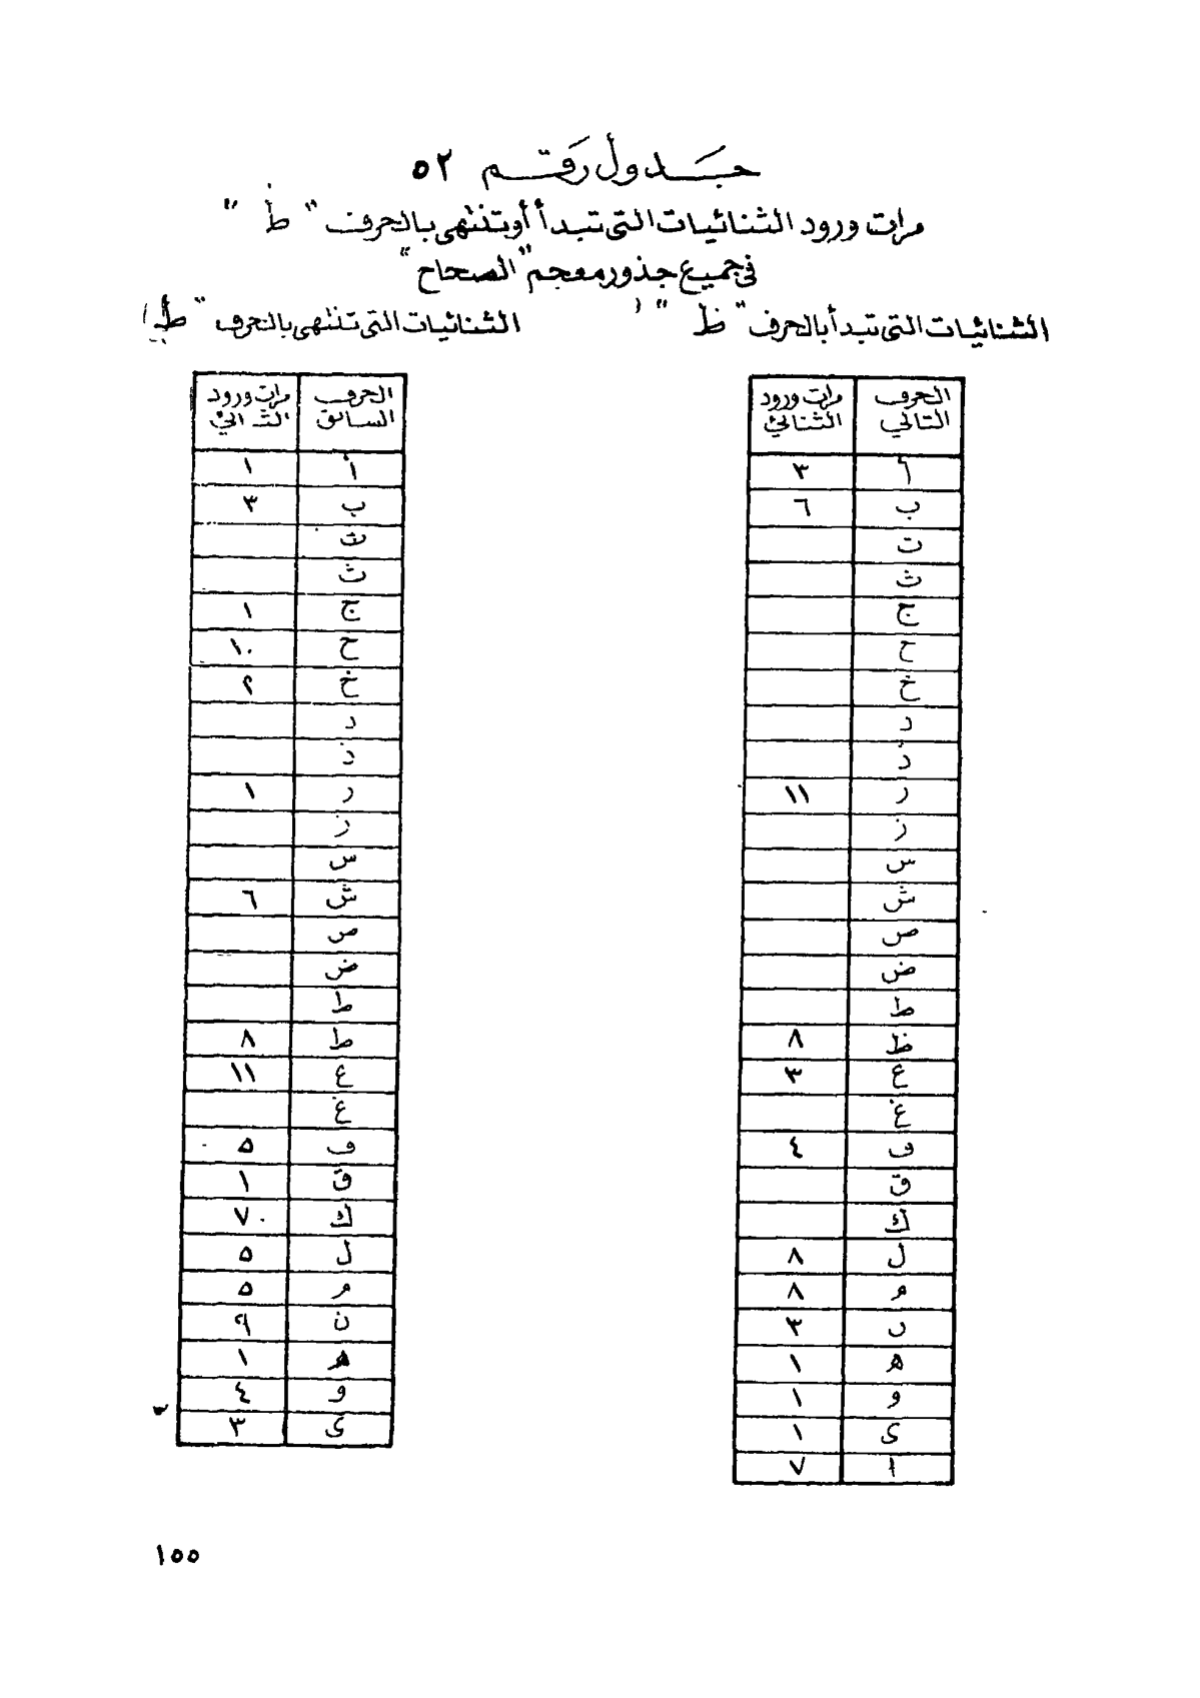 جدول رقم ٥٢
مرات ورود الثنائيات التى تبدأ أو تنتهى بالحرف " ظ "
فى جميع جذور معجم "الصحاح"
الثنائيات التى تبدأ بالحرف " ظ " (
الحرف التالي مرات ورود الثنائي
أ ٣
ب ٦
ت
ث
ج
ح
خ
د
ذ
ر ١١
ز
س
ش
ص
ض
ط
ظ ٨
ع ٣
غ
ف ٤
ق
ك
ل ٨
م ٨
ن ٣
ه ١
و ١
ى ١
ا ٧
الثنائيات التى تنتهى بالحرف " ظ )
الحرف السابق مرات ورود الثنائي
أ ١
ب ٣
ت
ث
ج ١
ح ١٠
خ ٢
د
ذ
ر ١
ز
س
ش ٦
ص
ض
ط
ظ ٨
ع ١١
غ
ف ٥
ق ١
ك ٧
ل ٥
م ٥
ن ٩
ه ١
و ٤
ى ٣
١٥٥